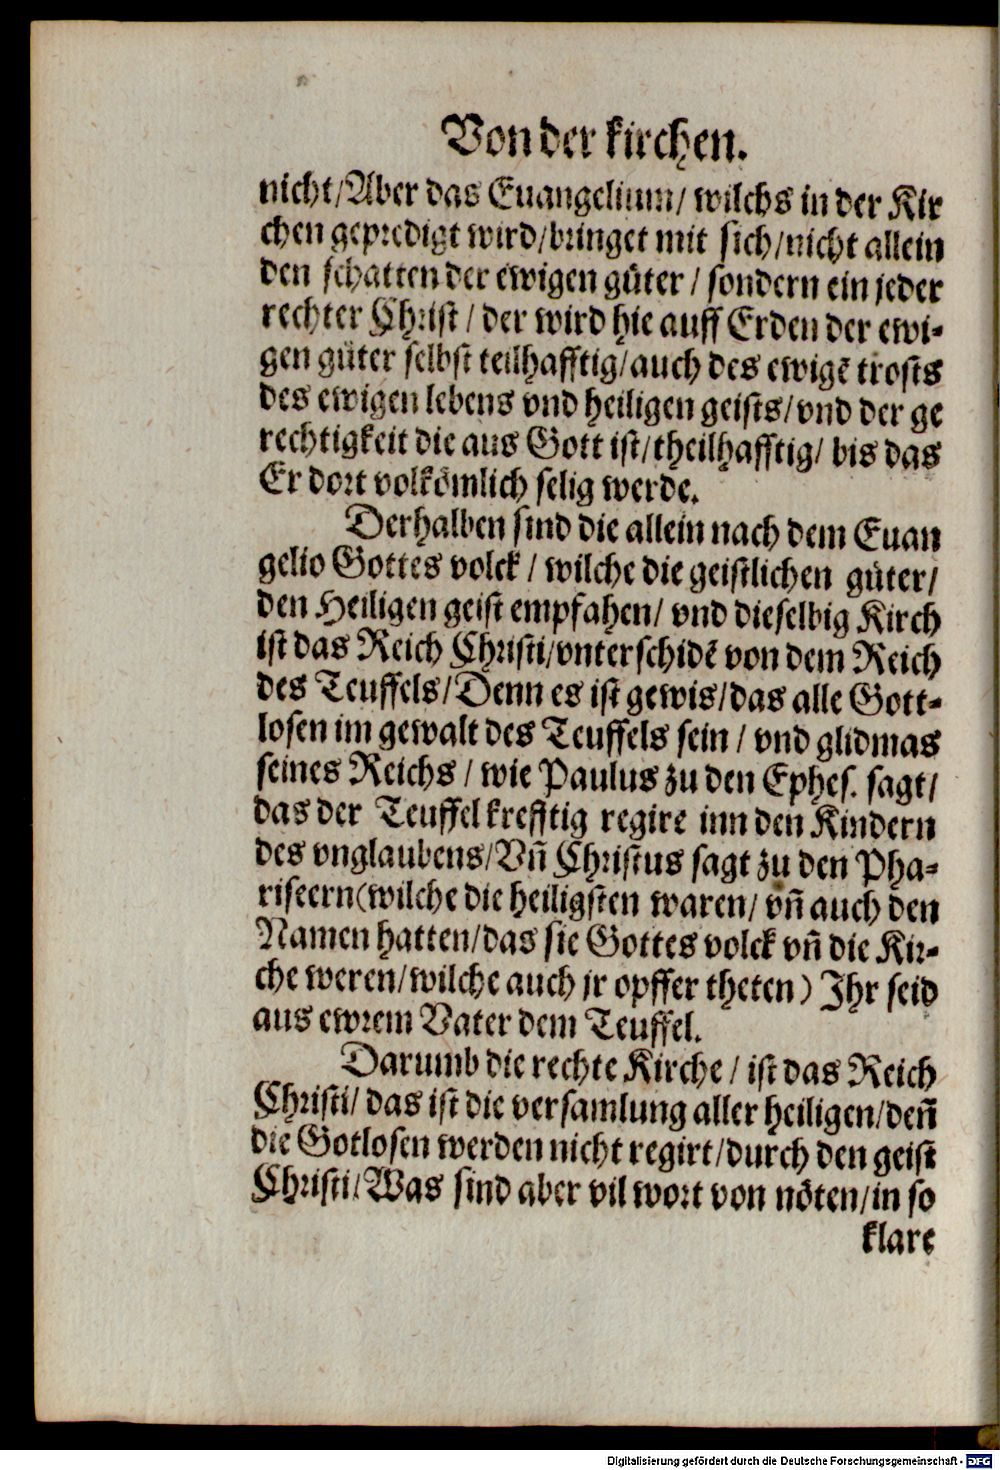 Von der kirchen.
nicht/Aber das Euangelium/ wilchs in der Kir
chen gepredigt wird/bringet mit sich/nicht allein
den schatten der ewigen güter / sondern ein jeder
rechter Christ / der wird hie auff Erden der ewi-
gen güter selbst teilhafftig/auch des ewigē trosts
des ewigen lebens vnd heiligen geists/vnd der ge
rechtigkeit die aus Gott ist/theilhafftig/ bis das
Er dort volkömlich selig werde.
Derhalben sind die allein nach dem Euan
gelio Gottes volck / wilche die geistlichen güter/
den Heiligen geist empfahen/ vnd dieselbig Kirch
ist das Reich Christi/vnterschidē von dem Reich
des Teuffels/Denn es ist gewis/das alle Gott-
losen im gewalt des Teuffels sein / vnd glidmas
seines Reichs / wie Paulus zu den Ephes. sagt/
das der Teuffel krefftig regire inn den Kindern
des vnglaubens/Vñ Christus sagt zu den Pha-
riseern(wilche die heiligsten waren/ vñ auch den
Namen hatten/das sie Gottes volck vñ die Kir-
che weren/wilche auch jr opffer theten) Ihr seid
aus ewrem Vater dem Teuffel.
Darumb die rechte Kirche / ist das Reich
Christi/ das ist die versamlung aller heiligen/deñ
die Gotlosen werden nicht regirt/durch den geist
Christi/Was sind aber vil wort von nöten/in so
klare
Digitalisierung gefördert durch die Deutsche Forschungsgemeinschaft - DFG